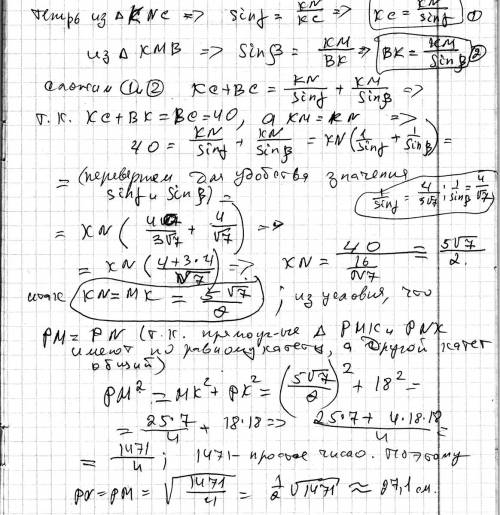 Теперь из △ KNC => sinγ = KN/KC => KC = KN/sinγ ①
из △ KMB => sinβ = KM/BK => BK = KM/sinβ ②
сложим ① и ② KC+BC = KN/sinγ + KM/sinβ =>
т.к. KC+BK=BC=40, а KM=KN =>
40 = KN/sinγ + KN/sinβ = KN(1/sinγ + 1/sinβ) =
= (перевернем для удобства значения
sinγ и sinβ) = 1/sinγ = 4/3√7; 1/sinβ = 4/√7
= KN(4/3√7 + 4/√7) =>
= KN(4+3·4/√7) => KN = 40/(16/√7) = 5√7/2.
KN=MK = 5√7/2; из условия, что
PM=PN (т.к. прямоуг-ые △ PMK и PNK
имеют по равному катету, а другой катет
общий)
PM² = MK² + PK² = (5√7/2)² + 18² =
= 25·7/4 + 18·18 => 25·7+4·18·18/4 =
= 1471/4; 1471- простое число. Поэтому
PN=PM= √1471/4 = 1/2 √1471 ≈ 27,1 см.